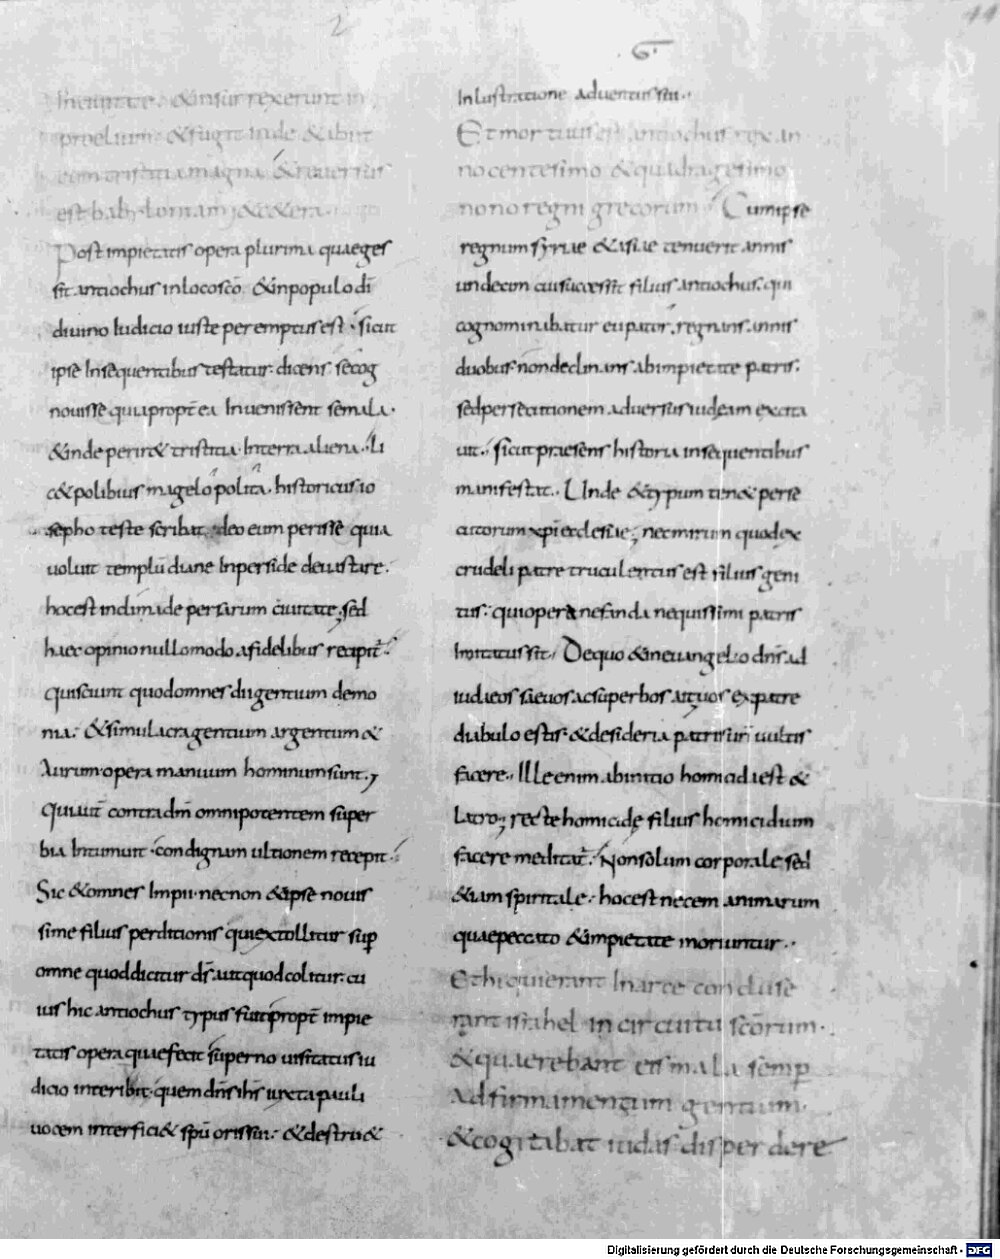 2
44
In ciuitate · & insurrexerunt in
proelium · & fugit inde & abiit
cum tristitia magna · & reuersus
est babyloniam & cetera ·
Post impietatis opera plurima quae ges
sit antiochus in loco sc̄o · & in populo dī
diuino Iudicio iuste peremptus est · sicut
ipse Insequentibus testatur · dicens se cog
nouisse quia propt̄ ea Inuenissent se mala ·
& inde perir& tristitia · In terra aliena · li
c& polibius magelopolita · historicus io
sepho teste scribat · ideo eum perisse quia
uoluit templū diane In perside deuastare ·
hoc est indimade persarum ciuitate · sed
haec opinio nullomodo a fidelibus recipit̄ ·
qui sciunt quod omnes dii gentium demo
nia · & simulacra gentium argentum &
Aurum · opera manuum hominum sunt ·
qui uiūt contra dm̄ omnipotentem super
bia Intumuit · condignam ultionem recepit ·
Sic & omnes Impii · necnon & ipse nouis
sime filius perditionis qui extollitur sup̄
omne quod dicitur ds̄ · aut quod colitur · cu
ius hic antiochus typus fuit propt̄ impie
tatis opera quae fecit superno uisitatus iu
dicio interibit · quem dn̄s ihs̄ iuxta pauli
uocem interfici& spū oris sui · & destru&
6 ·
Inlustratione aduentus sui ·
Et mortuus est antiochus rex an
no centesimo & quadragesimo
nono regni grecorum · Cum ipse
regnum syriae & asiae tenuerit annis
undecim cui successit filius antiochus · qui
cognominabatur eupator · regnans annis
duobus · non declinans ab impietate patris ·
sed persecutionem aduersus iudeam excita
uit · sicut praesens historia insequentibus
manifestat · Unde & typum ten& perse
cutorum xpi ecclesiae ; nec mirum quod ex
crudeli patre truculentus est filius geni
tus · qui opera nefanda nequissimi patris
Imitatus sit · De quo & in euangelio dn̄s ad
iudaeos saeuos ac superbos ait uos ex patre
diabulo estis · & desideria patris uri uultis
facere · Ille enim ab initio homicida est &
Latro · recte homicide filius homicidium
facere meditat̄ · Non solum corporale sed
& iam spiritale · hoc est necem animarum
quae peccato & impietate moriuntur ·
Et hi qui erant In arce concluse
rant israhel in circuitu scōrum ·
& quaerebant eis mala semp̄
Ad firmamentum gentium ·
& cogitabat iudas disperdere
Digitalisierung gefördert durch die Deutsche Forschungsgemeinschaft - DFG